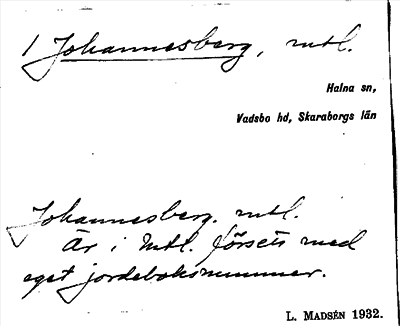 1 Johannesberg, mtl.
Halna sn,
Vadsbo hd, Skaraborgs län
Johannesberg. mtl.
Är i mtl. försett med
eget jordeboksnummer.
L. MADSÉN 1932.